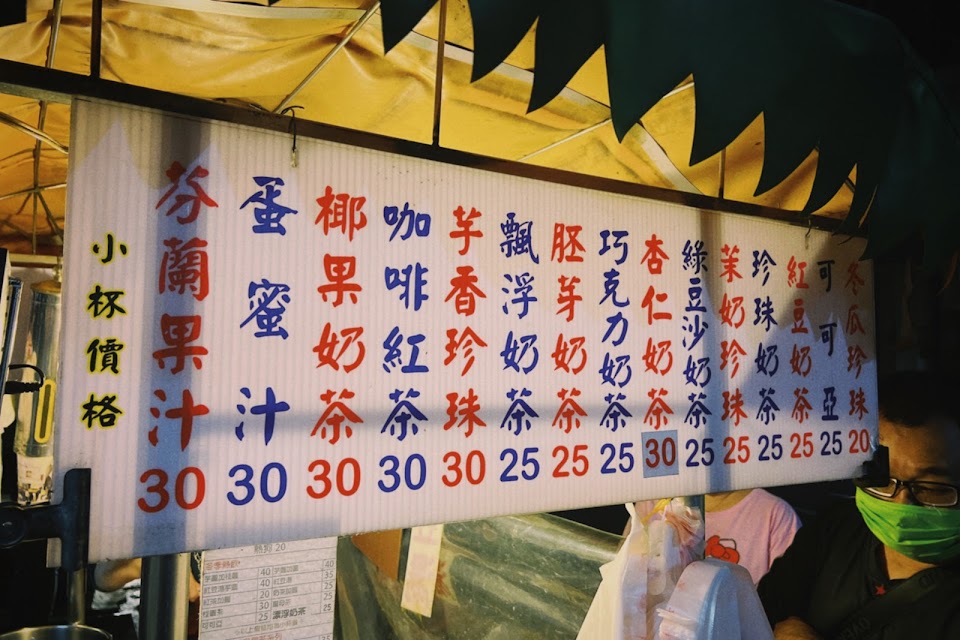 小杯價格
芬蘭果汁30
蛋蜜汁30
椰果奶茶30
咖啡紅茶30
芋香珍珠30
飄浮奶茶25
胚芽奶茶25
巧克力奶茶25
杏仁奶茶30
綠豆沙奶茶25
茉奶珍珠25
珍珠奶茶25
紅豆奶茶25
可可亞25
冬瓜珍珠20
漂浮奶茶